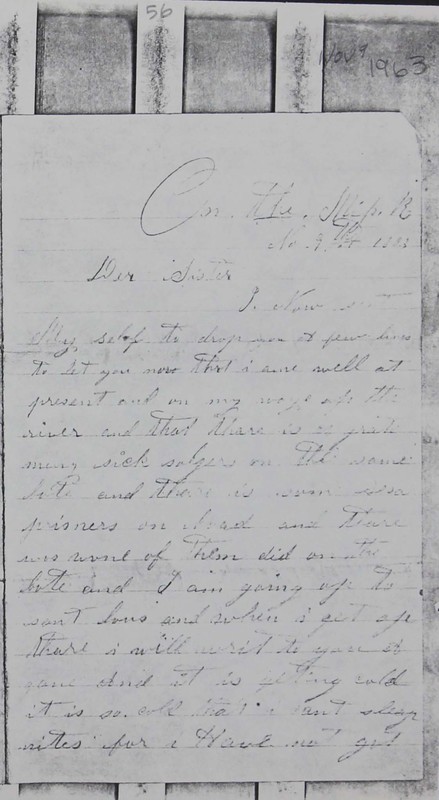 56
Nov 9
1963
On the Misp. R
No. 9th 1863
Der Sister
I. Now
My self to drop you a few lines
to let you now that i ame well at
present and on my waye up the
river and that thare is a grate
meny sick solgers on the same
bote and thare is som
prisners on and thare
was wone of them did on the
bote and I am going up to
sant louis and when i get up
thare i will writ to you a
gane and it is getting cold
it is so cold that i cant sleep
nites for i Have not got